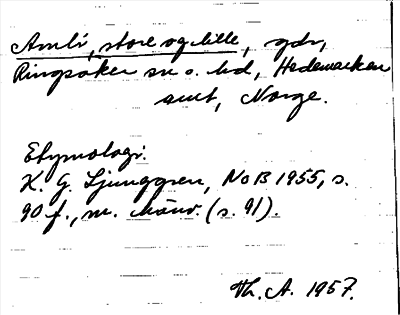 Amli, store og lille, gdr,
Ringsaker sn o. hd, Hedemarken
amt, Norge.
Etymologi.
K. G. Ljunggren, NoB 1955, s.
90 f., m. hänv. (s. 91).
Th. A. 1957.